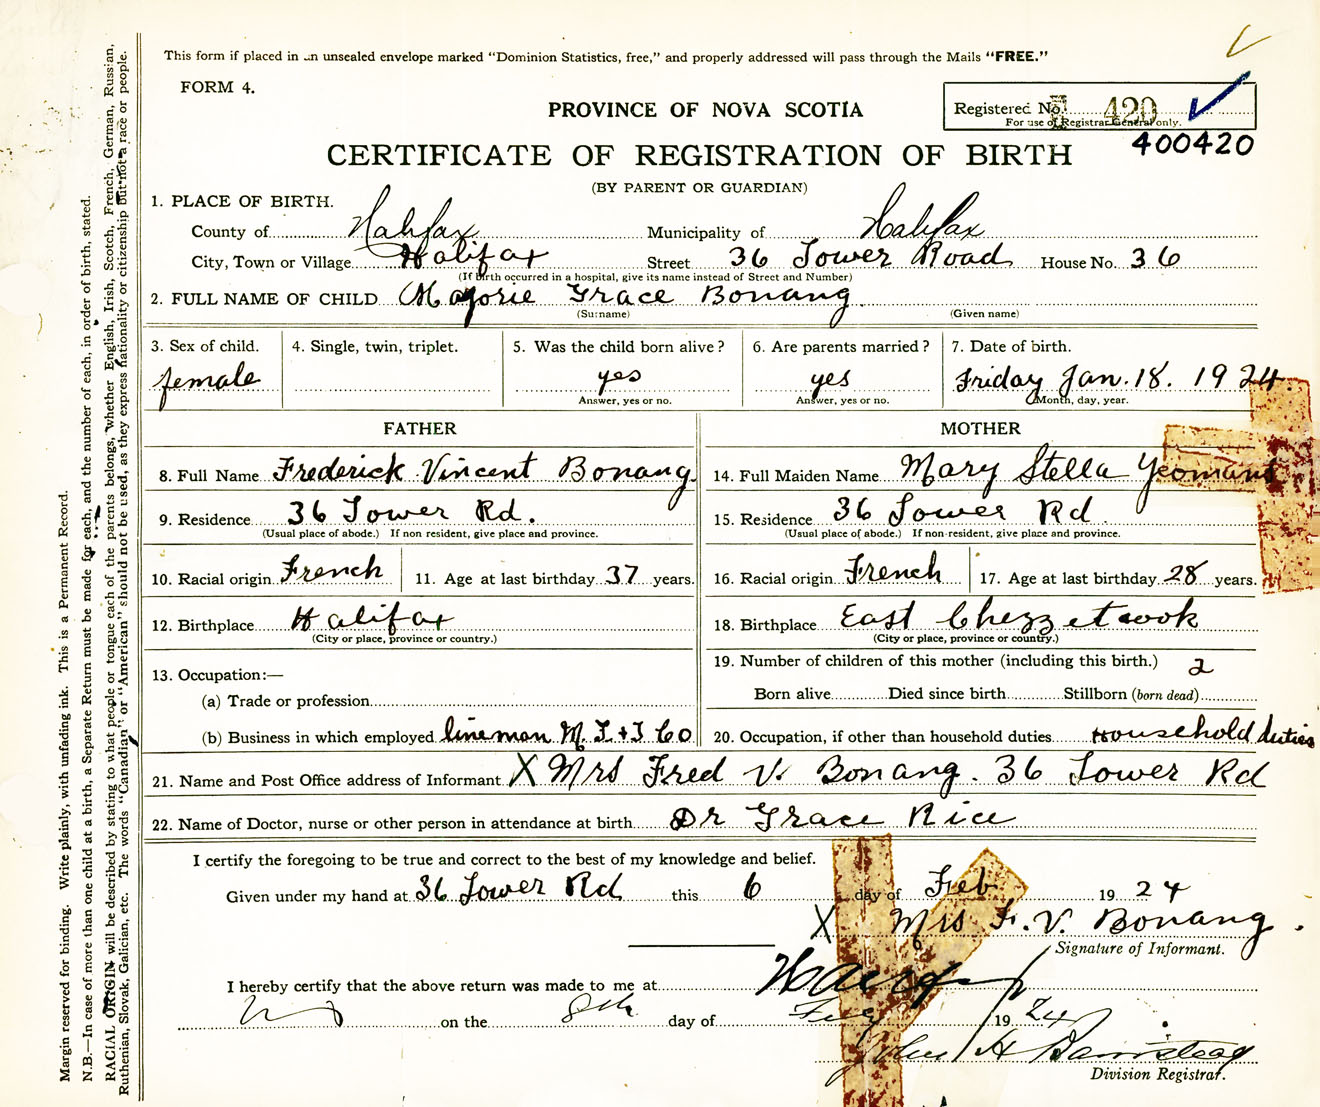 This form if placed in an unsealed envelope marked "Dominion Statistics, free," and properly addressed will pass through the Mails "FREE."
FORM 4.
Registered No. 420
For use of Registrar General only.
PROVINCE OF NOVA SCOTIA
400420
CERTIFICATE OF REGISTRATION OF BIRTH
(BY PARENT OR GUARDIAN)
1. PLACE OF BIRTH.
County of Halifax Municipality of Halifax
City, Town or Village Halifax Street 36 Tower Road House No. 36
(If birth occurred in a hospital, give its name instead of Street and Number)
2. FULL NAME OF CHILD Marjorie Grace Bonang
(Surname) (Given name)
3. Sex of child. 4. Single, twin, triplet. 5. Was the child born alive? 6. Are parents married? 7. Date of birth.
female yes yes Friday Jan. 18. 1924
Answer, yes or no. Answer, yes or no. Month, day, year.
FATHER MOTHER
8. Full Name Frederick Vincent Bonang 14. Full Maiden Name Mary Stella Yeomans
9. Residence 36 Tower Rd. 15. Residence 36 Tower Rd
(Usual place of abode.) If non resident, give place and province. (Usual place of abode.) If non-resident, give place and province.
10. Racial origin French 11. Age at last birthday 37 years. 16. Racial origin French 17. Age at last birthday 28 years.
12. Birthplace Halifax 18. Birthplace East Chezzetcook
(City or place, province or country.) (City or place, province or country.)
13. Occupation:— 19. Number of children of this mother (including this birth.) 2
(a) Trade or profession Born alive Died since birth Stillborn (born dead)
(b) Business in which employed lineman M. T. + T Co 20. Occupation, if other than household duties Household duties
21. Name and Post Office address of Informant X Mrs Fred V. Bonang. 36 Tower Rd
22. Name of Doctor, nurse or other person in attendance at birth Dr Grace Rice
I certify the foregoing to be true and correct to the best of my knowledge and belief.
Given under my hand at 36 Tower Rd this 6 day of Feb 1924
X Mrs F. V. Bonang.
Signature of Informant.
I hereby certify that the above return was made to me at Halifax
on the 8th day of Feby 1924
John H Barnstead
Division Registrar.
Margin reserved for binding. Write plainly, with unfading ink. This is a Permanent Record.
N.B.—In case of more than one child at a birth, a Separate Return must be made for each, and the number of each, in order of birth, stated.
RACIAL ORIGIN will be described by stating to what people or tongue each of the parents belongs, whether English, Irish, Scotch, French, German, Russian,
Ruthenian, Slovak, Galician, etc. The words "Canadian" or "American" should not be used, as they express nationality or citizenship but not a race or people.